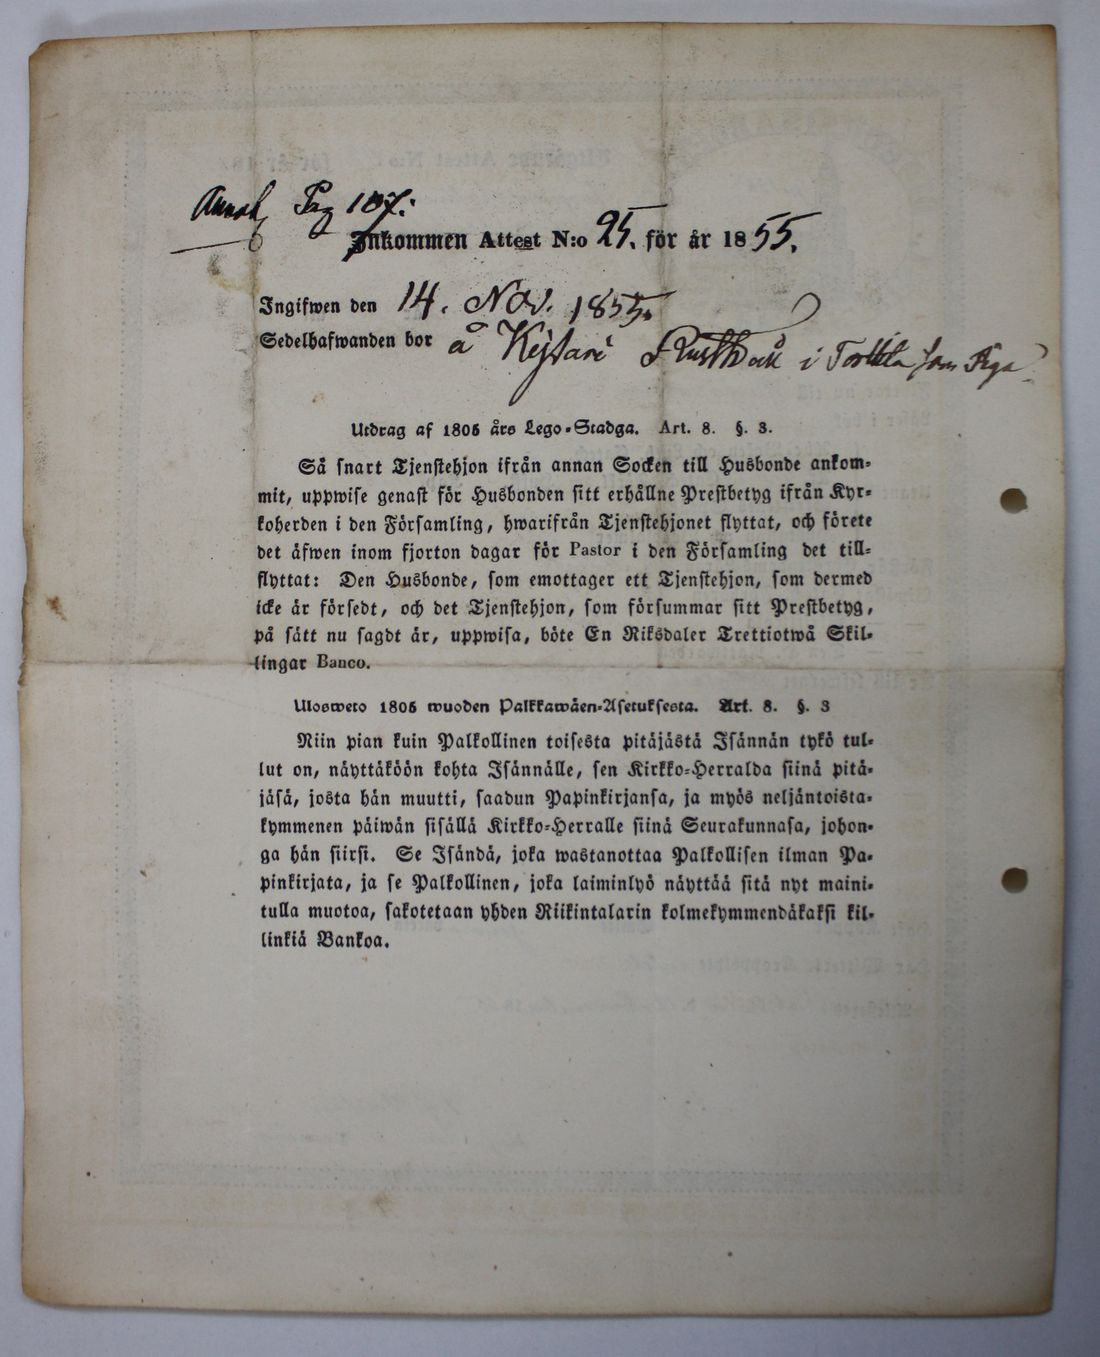 Pag 107.
Inkommen Attest N:o 25. för år 1855.
Ingifwen den 14. Nov. 1855.
Sedelhafwanden bor å i som Piga
Utdrag af 1805 års Lego-Stadga. Art. 8. §. 3.
Så snart Tjenstehjon ifrån annan Socken till Husbonde ankom-
mit, uppwise genast för Husbonden sitt erhållne Prestbetyg ifrån Kyr-
koherden i den Församling, hwarifrån Tjenstehjonet flyttat, och förete
det äfwen inom fjorton dagar för Pastor i den Församling det till-
flyttat: Den Husbonde, som emottager ett Tjenstehjon, som dermed
icke är försedt, och det Tjenstehjon, som försummar sitt Prestbetyg,
på sätt nu sagdt är, uppwisa, böte En Riksdaler Trettiotwå Skil-
lingar Banco.
Ulosweto 1805 wuoden Palkkawäen-Asetuksesta. Art. 8. §. 3
Niin pian kuin Palkollinen toisesta pitäjästä Isännän tykö tul-
lut on, näyttäköön kohta Isännälle, sen Kirkko-Herralda siinä pitä-
jäsä, josta hän muutti, saadun Papinkirjansa, ja myös neljäntoista-
kymmenen päiwän sisällä Kirkko-Herralle siinä Seurakunnasa, johon-
ga hän siirsi. Se Isändä, joka wastanottaa Palkollisen ilman Pa-
pinkirjata, ja se Palkollinen, joka laiminlyö näyttää sitä nyt maini-
tulla muotoa, sakotetaan yhden Riikintalarin kolmekymmendäkaksi kil-
linkiä Bankoa.